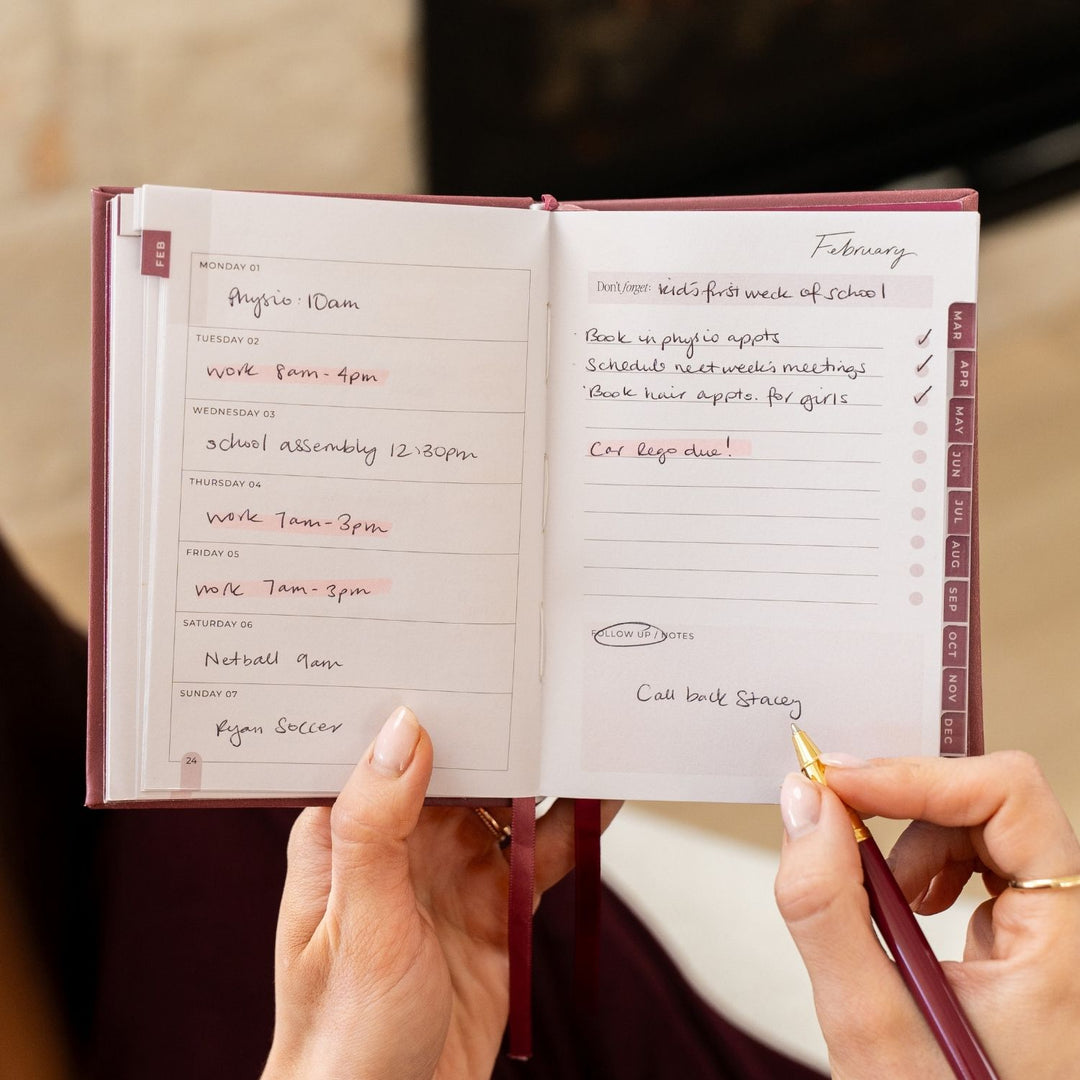 FEB
MONDAY 01
Physio: 10am
TUESDAY 02
work 8am - 4pm
WEDNESDAY 03
school assembly 12:30pm
THURSDAY 04
work 7am - 3pm
FRIDAY 05
work 7am - 3pm
SATURDAY 06
Netball 9am
SUNDAY 07
Ryan Soccer
24
February
Don't forget: kid's first week of school
Book in physio appts
Schedule next week's meetings
Book hair appts. for girls
Car Rego due!
FOLLOW UP / NOTES
Call back Stacey
MAR
APR
MAY
JUN
JUL
AUG
SEP
OCT
NOV
DEC